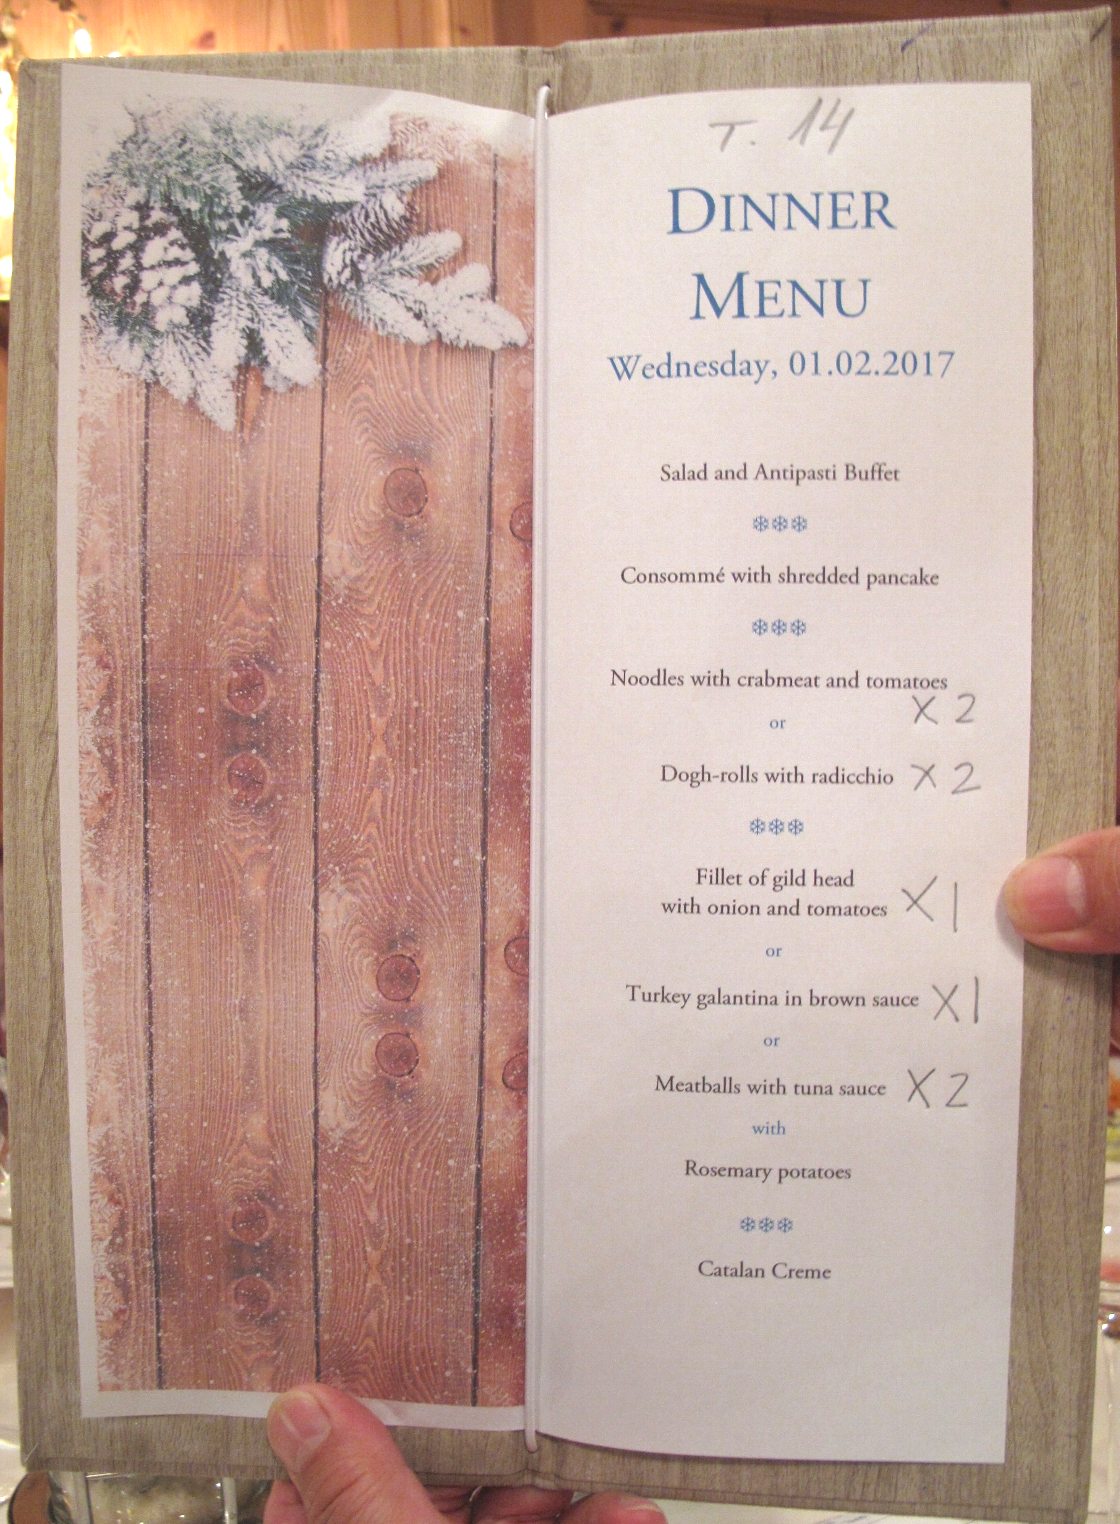 T. 14
DINNER
MENU
Wednesday, 01.02.2017
Salad and Antipasti Buffet
❄❄❄
Consommé with shredded pancake
❄❄❄
Noodles with crabmeat and tomatoes
X 2
or
Dogh-rolls with radicchio X 2
❄❄❄
Fillet of gild head
with onion and tomatoes X 1
or
Turkey galantina in brown sauce X 1
or
Meatballs with tuna sauce X 2
with
Rosemary potatoes
❄❄❄
Catalan Creme